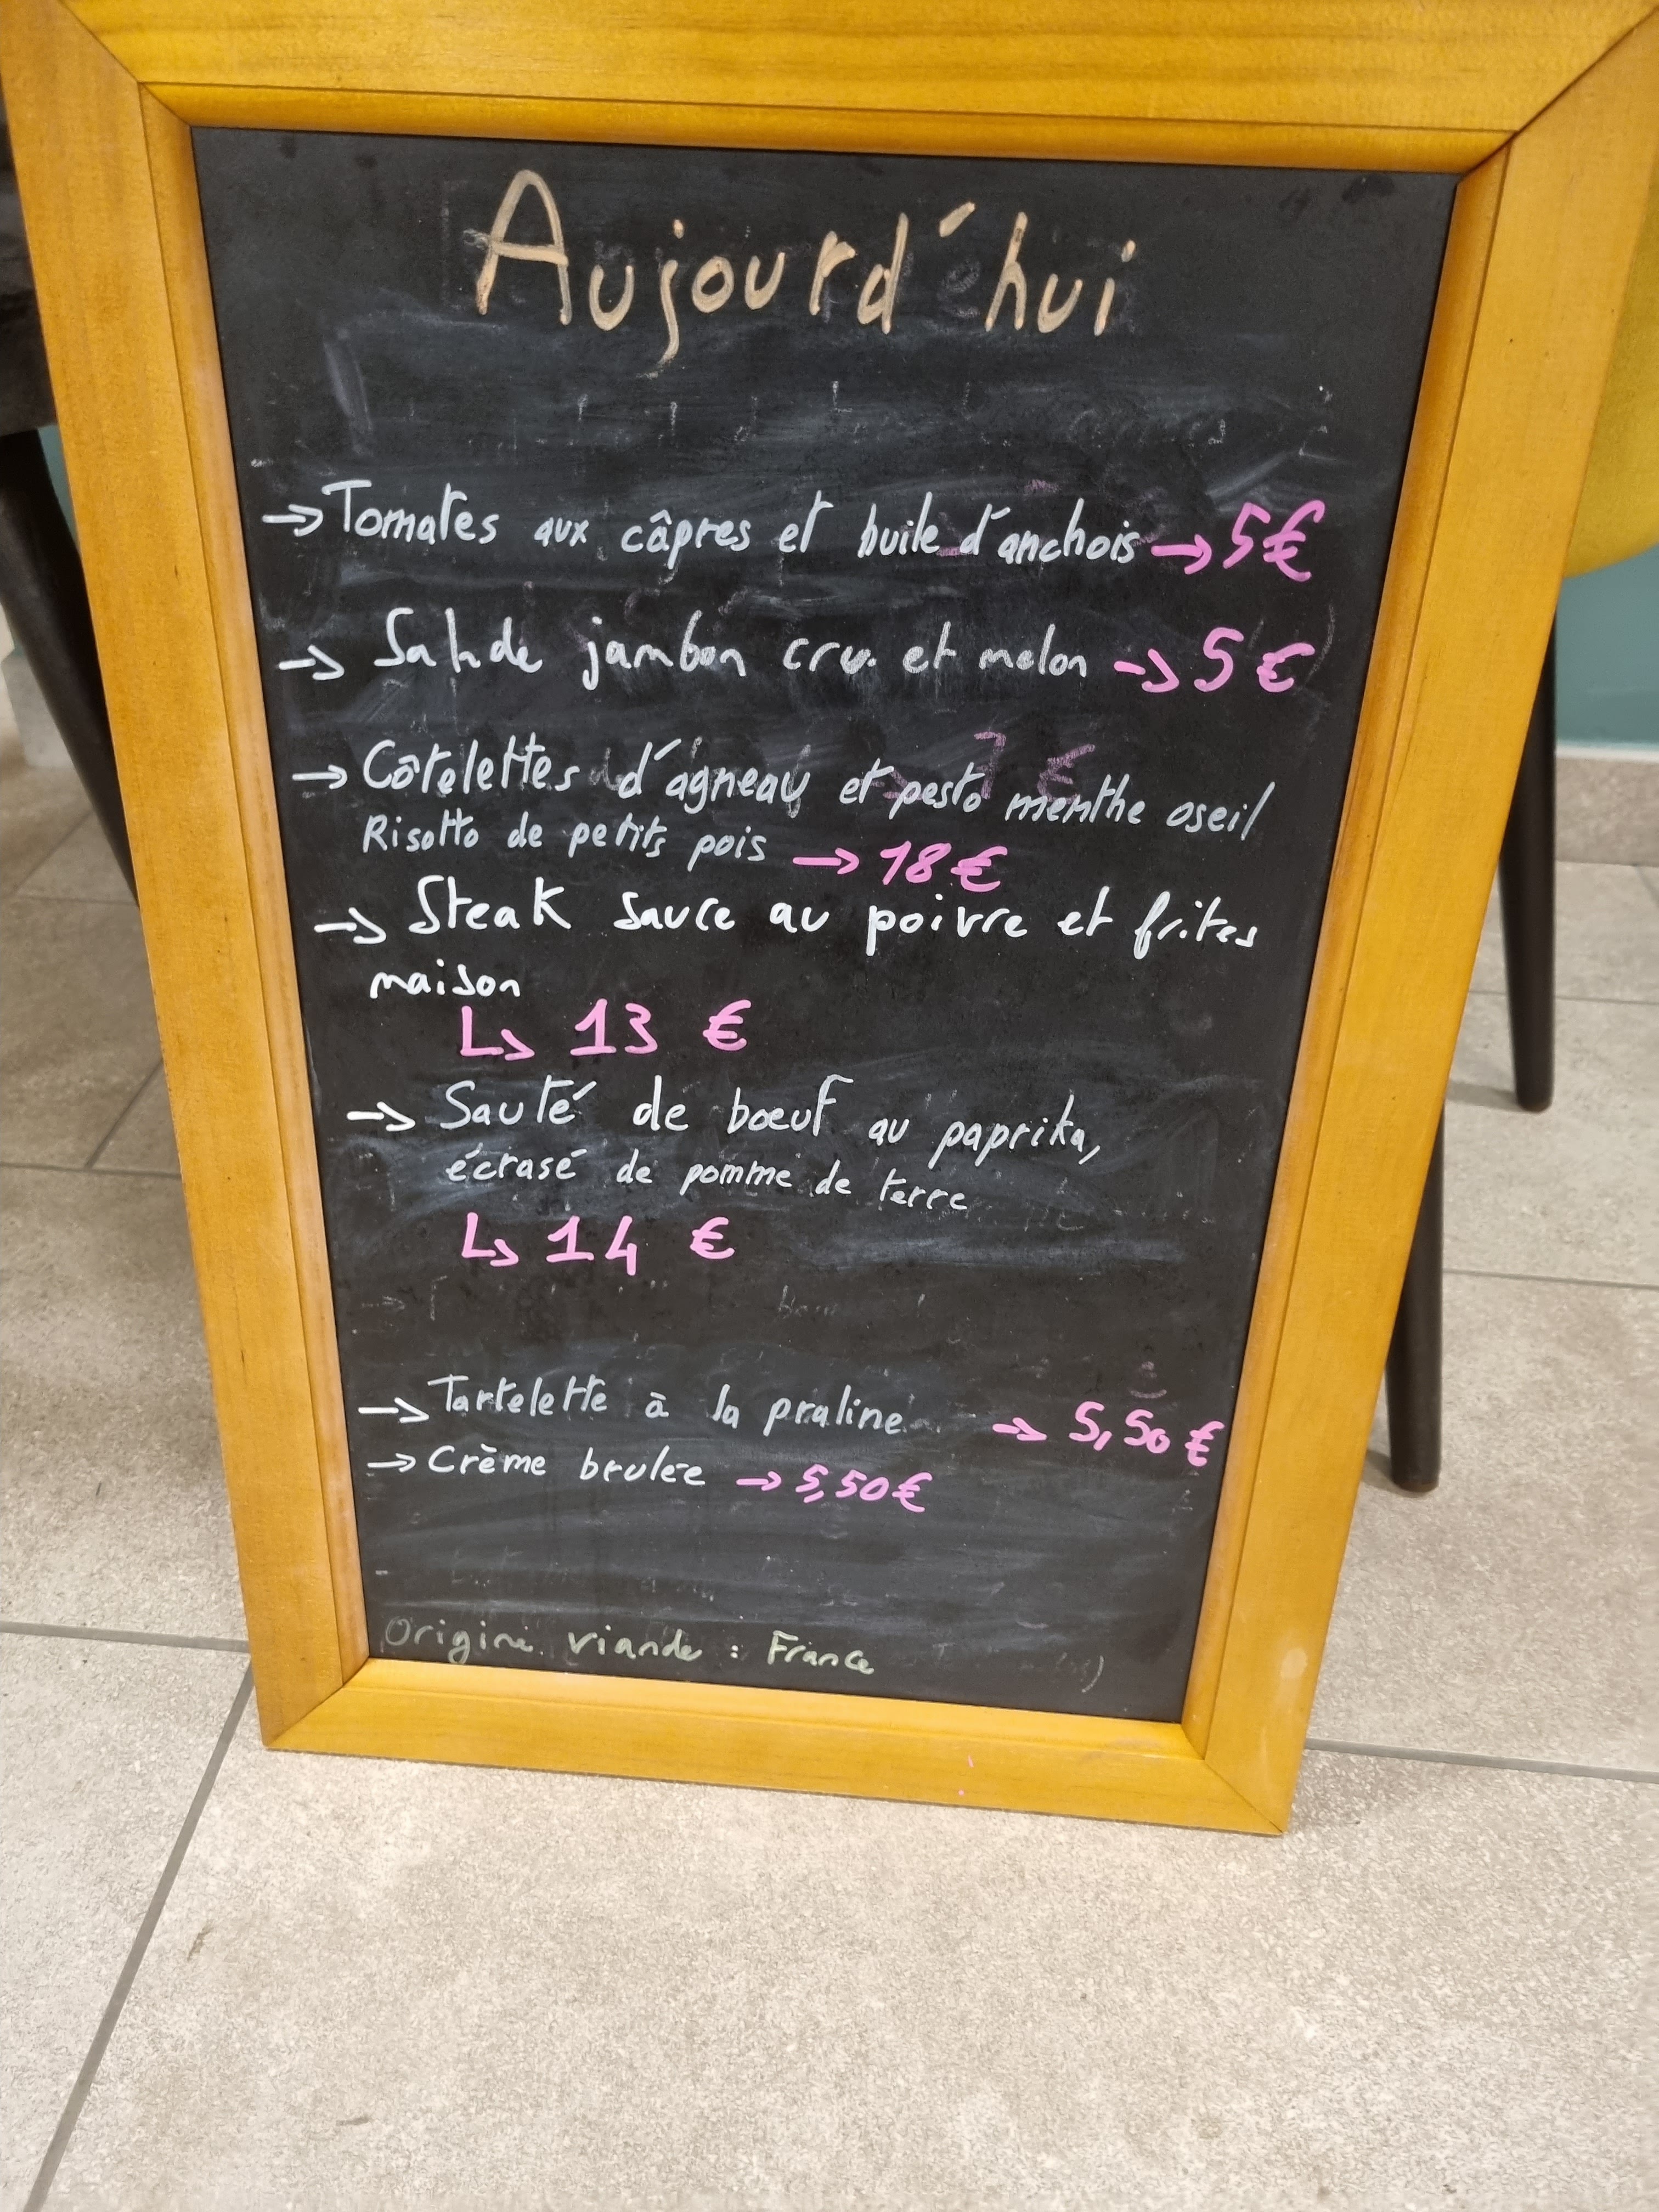 Aujourd'hui
→ Tomates aux câpres et huile d'anchois → 5€
→ Salade jambon cru et melon → 5€
→ Côtelettes d'agneau et pesto menthe oseil
Risotto de petits pois → 18€
→ Steak sauce au poivre et frites
maison
↳ 13 €
→ Sauté de bœuf au paprika,
écrasé de pomme de terre
↳ 14 €
→ Tartelette à la praline → 5,50 €
→ Crème brulée → 5,50€
Origine viande : France